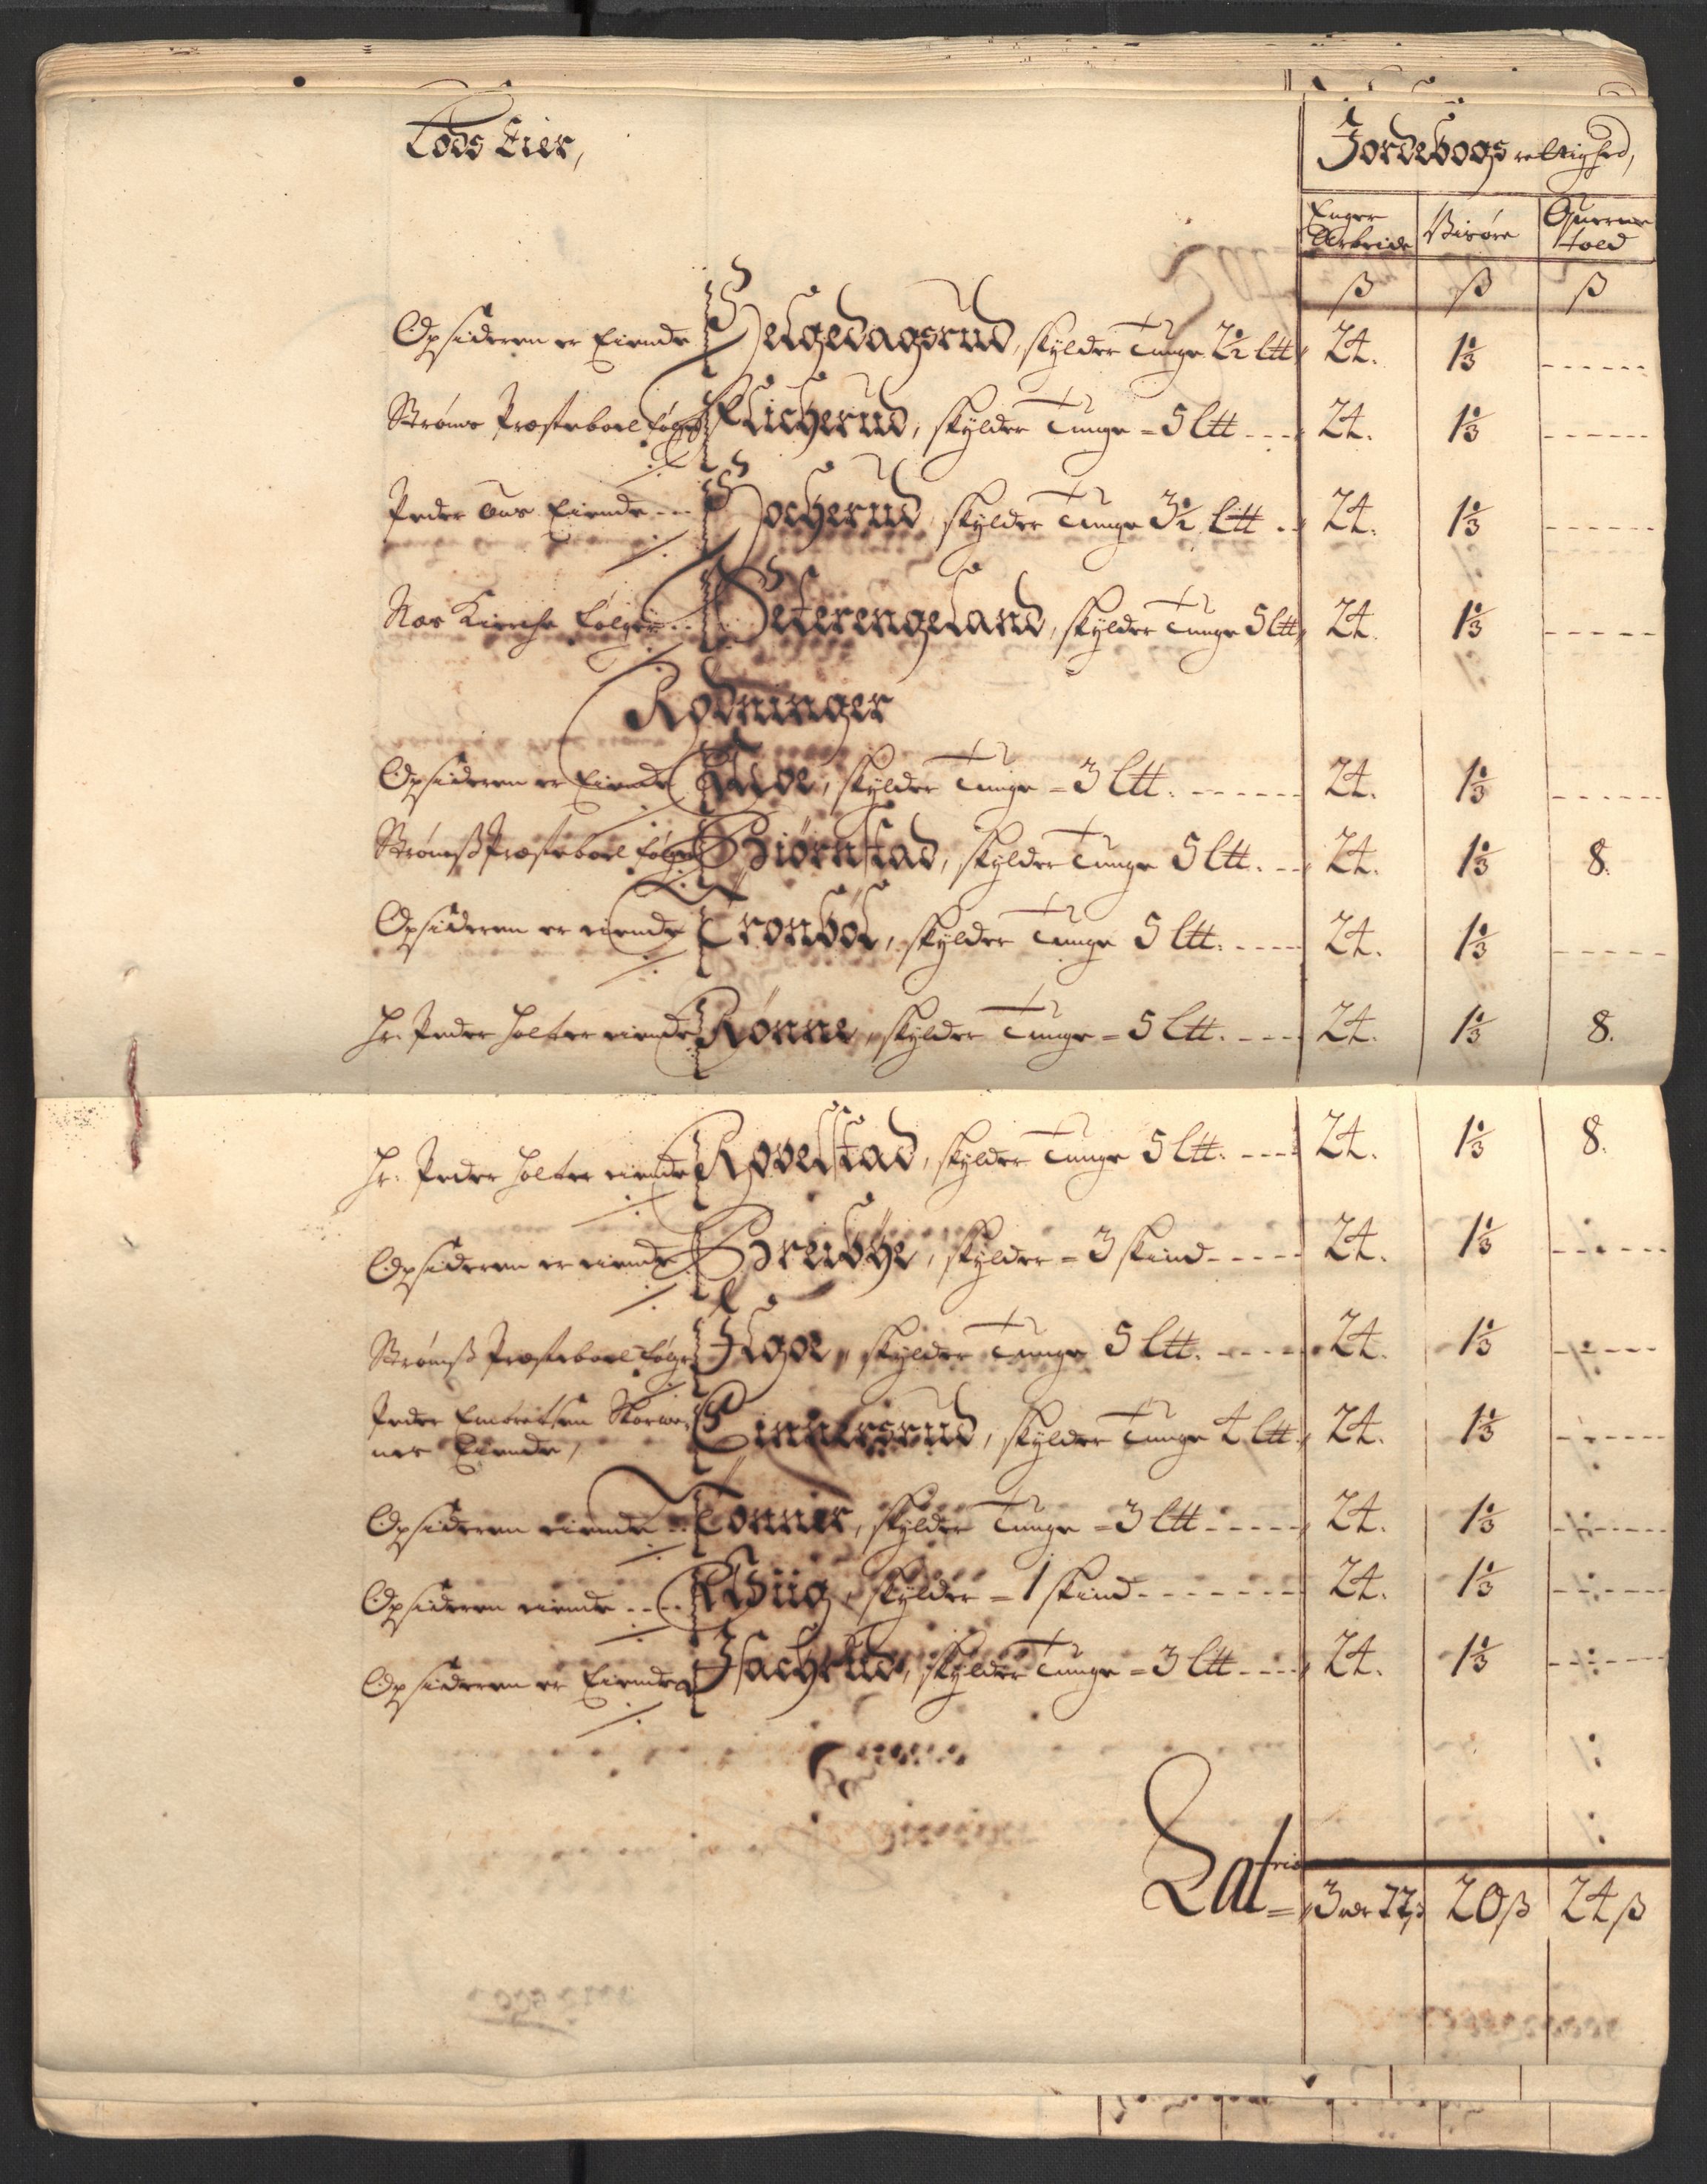 Lods Eier,
Jordebogs rettighed,
Enger Arbeide
Bisøre
Querne told
ß ß ß
Opsideren er Eiende Helgedagsrud, skylder Tunge 2½ Ltt 24. 1⅓
Strøms Præsteboel følger skylder Tunge = 5 Ltt 24. 1⅓
Peder Aas Eiende Hocherud skylder Tunge 3½ Ltt 24. 1⅓
Nas Kirche følger Seterengeland, skylder Tunge 5 Ltt 24. 1⅓
Rødninger
Opsideren er Eiende skylder Tunge = 3 Ltt. 24. 1⅓
Strømß Præsteboel følger Biørnstad, skylder Tunge 5 Ltt. 24. 1⅓ 8.
Opsideren er eiende Tronbøl, skylder Tunge 5 Ltt. 24. 1⅓
Hr. Peder Holter eiende Rønne, skylder Tunge = 5 Ltt. 24. 1⅓ 8.
Hr. Peder Holter eiende Rovelstad, skylder Tunge 5 Ltt. 24. 1⅓ 8.
Opsideren er eiende Breibÿe, skylder = 3 skind 24. 1⅓
Strømß Præsteboel følger skylder Tunge 5 Ltt. 24. 1⅓
Peder Embretsen
Eiende, skylder Tunge 4 Ltt. 24. 1⅓
Opsideren eiende Tønner, skylder Tunge = 3 Ltt 24. 1⅓
Opsideren eiende Wiig, skylder = 1 skind 24. 1⅓
Opsideren er Eiende Isachrud, skylder Tunge = 3 Ltt 24. 1⅓
Latris = 3 rdr 72 ß 20 ß 24 ß